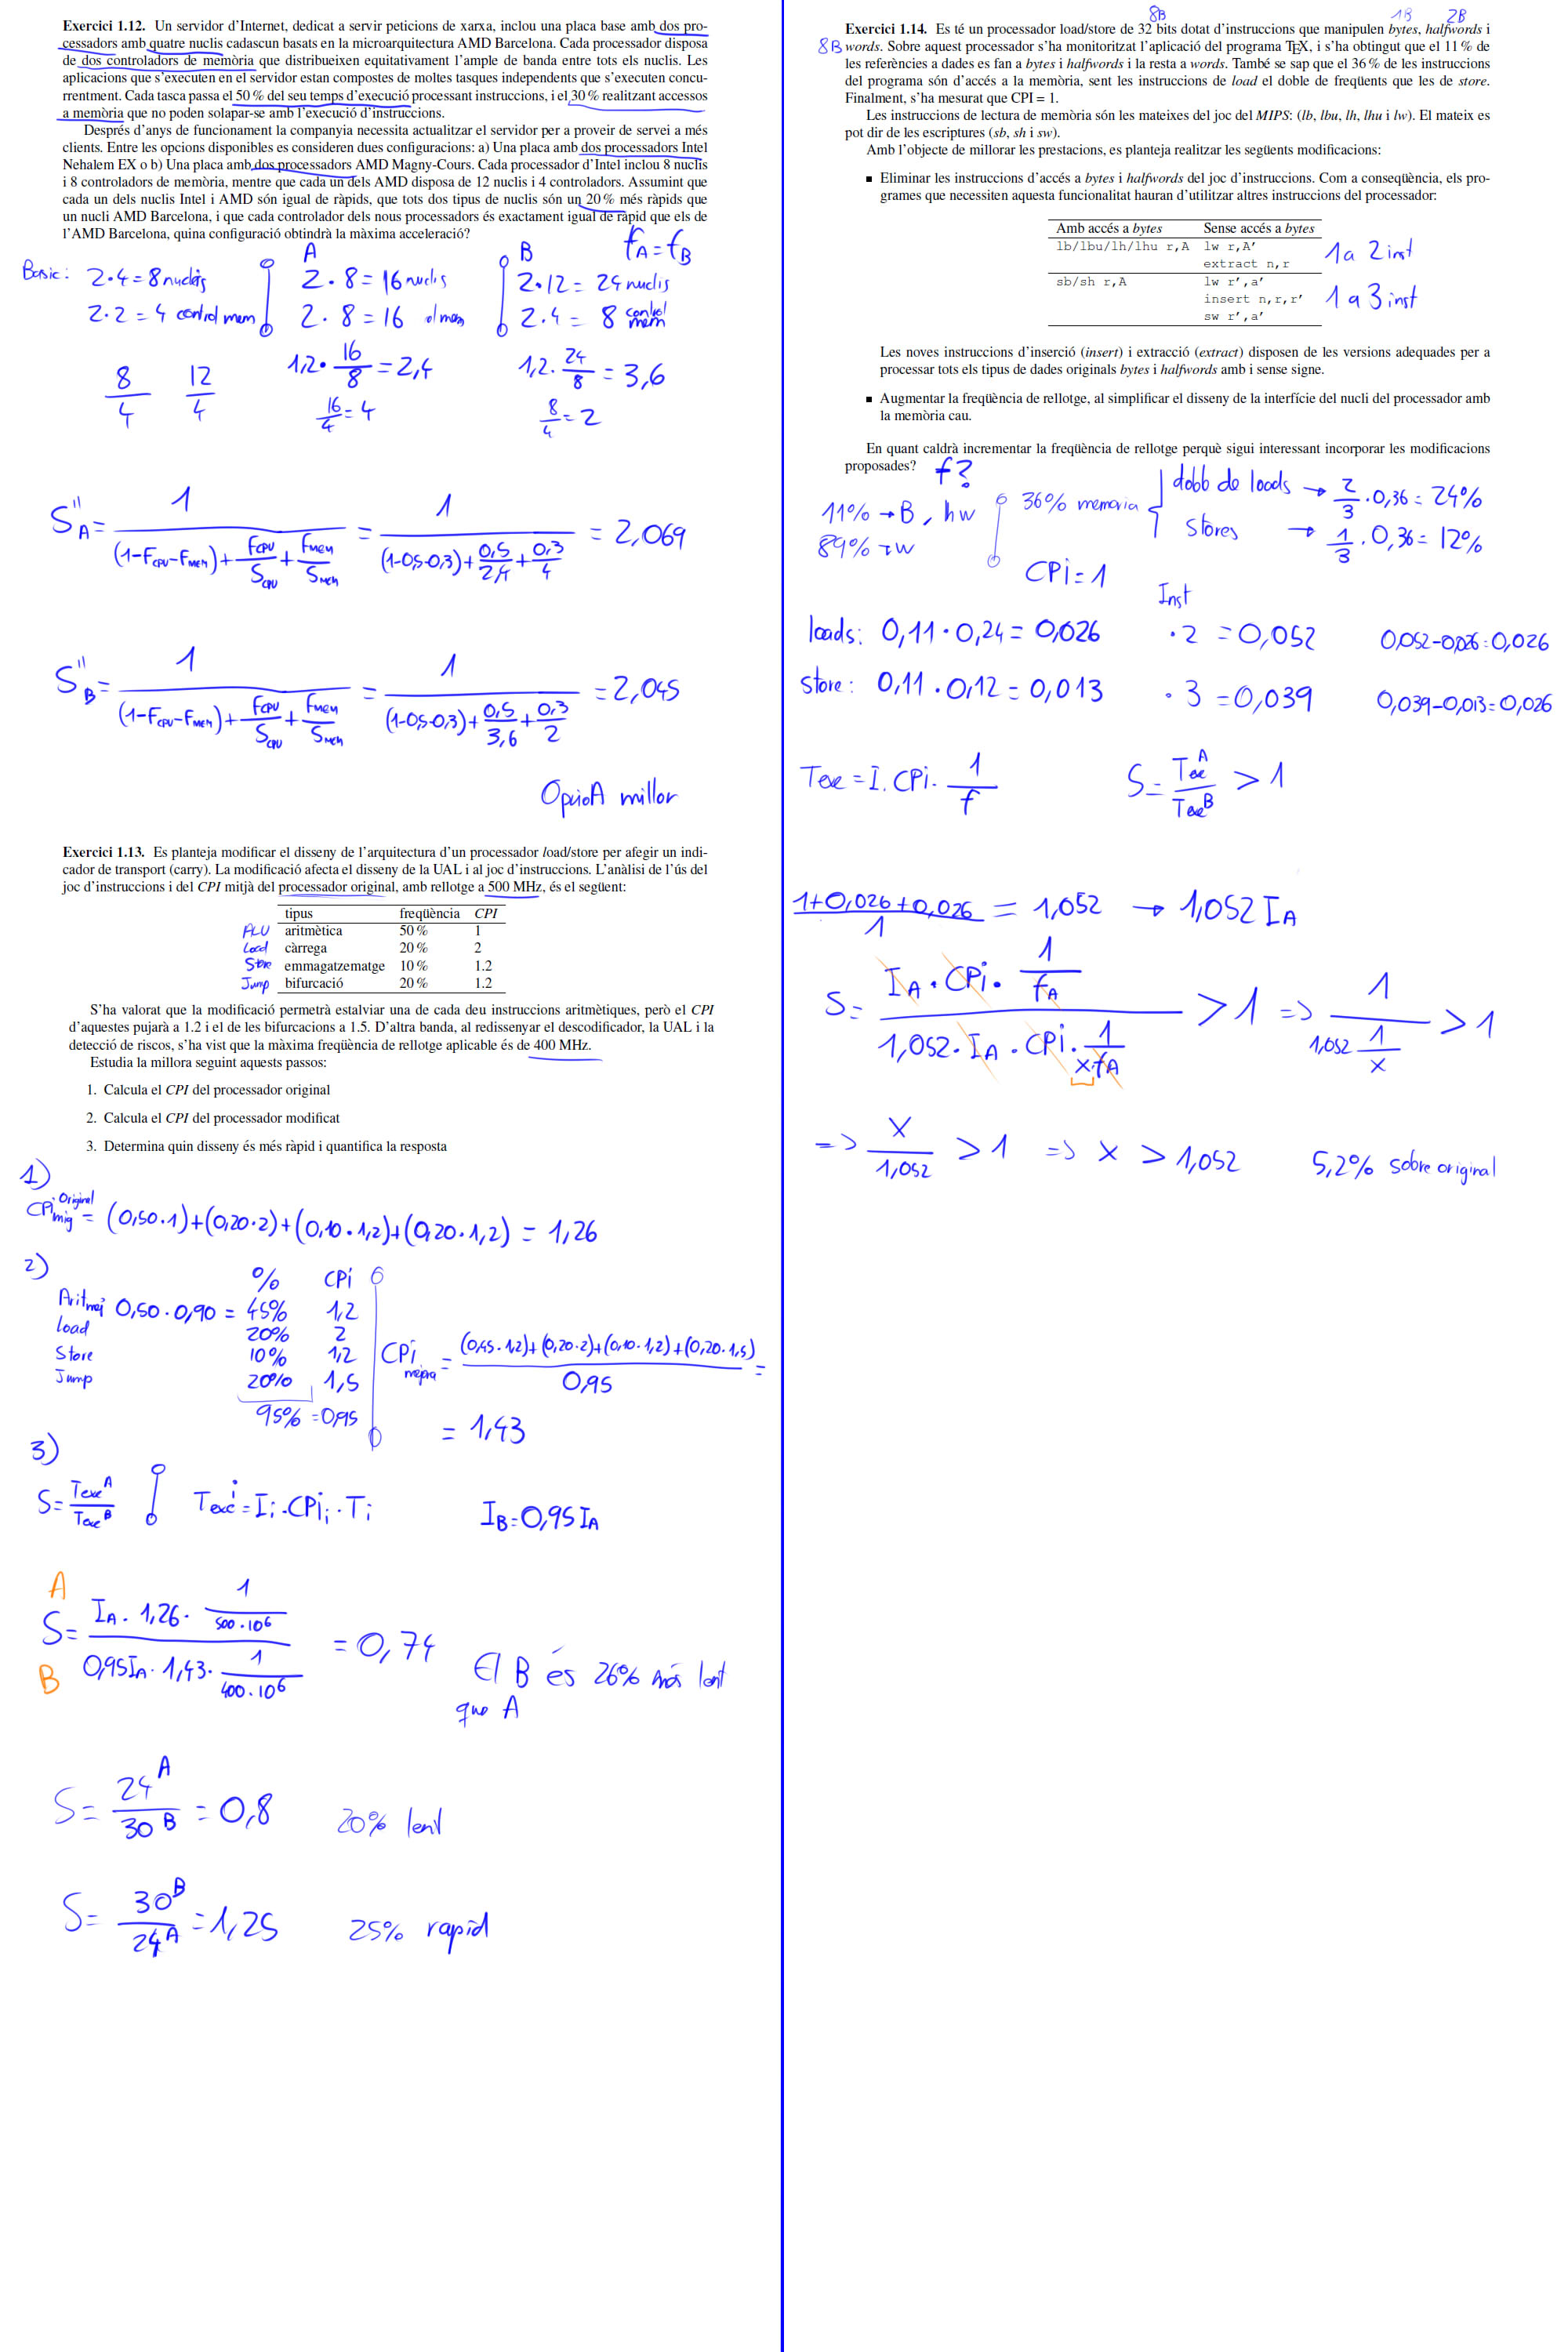 Exercici 1.12. Un servidor d'Internet, dedicat a servir peticions de xarxa, inclou una placa base amb dos pro-
cessadors amb quatre nuclis cadascun basats en la microarquitectura AMD Barcelona. Cada processador disposa
de dos controladors de memòria que distribueixen equitativament l'ample de banda entre tots els nuclis. Les
aplicacions que s'executen en el servidor estan compostes de moltes tasques independents que s'executen concu-
rrentment. Cada tasca passa el 50 % del seu temps d'execució processant instruccions, i el 30 % realitzant accessos
a memòria que no poden solapar-se amb l'execució d'instruccions.
Després d'anys de funcionament la companyia necessita actualitzar el servidor per a proveir de servei a més
clients. Entre les opcions disponibles es consideren dues configuracions: a) Una placa amb dos processadors Intel
Nehalem EX o b) Una placa amb dos processadors AMD Magny-Cours. Cada processador d'Intel inclou 8 nuclis
i 8 controladors de memòria, mentre que cada un dels AMD disposa de 12 nuclis i 4 controladors. Assumint que
cada un dels nuclis Intel i AMD són igual de ràpids, que tots dos tipus de nuclis són un 20 % més ràpids que
un nucli AMD Barcelona, i que cada controlador dels nous processadors és exactament igual de ràpid que els de
l'AMD Barcelona, quina configuració obtindrà la màxima acceleració?
A B fA = fB
Basic: 2·4=8 nuclis 2·8=16 nuclis 2·12=24 nuclis
2·2=4 control mem 2·8=16 2·4= 8 control mem
8/4 12/4 1,2·16/8=2,4 1,2·24/8=3,6
16/4=4 8/4=2
S"A= 1/((1-FCPU-FMEM)+FCPU/SCPU+FMEM/SMEM) = 1/((1-0,5-0,3)+0,5/2,4+0,3/4) = 2,069
S"B= 1/((1-FCPU-FMEM)+FCPU/SCPU+FMEM/SMEM) = 1/((1-0,5-0,3)+0,5/3,6+0,3/2) =2,045
Opció A millor
Exercici 1.13. Es planteja modificar el disseny de l'arquitectura d'un processador load/store per afegir un indi-
cador de transport (carry). La modificació afecta el disseny de la UAL i al joc d'instruccions. L'anàlisi de l'ús del
joc d'instruccions i del CPI mitjà del processador original, amb rellotge a 500 MHz, és el següent:
tipus freqüència CPI
ALU aritmètica 50 % 1
Load càrrega 20 % 2
Store emmagatzematge 10 % 1.2
Jump bifurcació 20 % 1.2
S'ha valorat que la modificació permetrà estalviar una de cada deu instruccions aritmètiques, però el CPI
d'aquestes pujarà a 1.2 i el de les bifurcacions a 1.5. D'altra banda, al redissenyar el descodificador, la UAL i la
detecció de riscos, s'ha vist que la màxima freqüència de rellotge aplicable és de 400 MHz.
Estudia la millora seguint aquests passos:
1. Calcula el CPI del processador original
2. Calcula el CPI del processador modificat
3. Determina quin disseny és més ràpid i quantifica la resposta
1)
CPi Original mig = (0,50·1)+(0,20·2)+(0,10·1,2)+(0,20·1,2) = 1,26
2)
% CPi
0,50·0,90 = 45% 1,2
load 20% 2
Store 10% 1,2
Jump 20% 1,5
95% =0,95
CPi = ((0,45·1,2)+(0,20·2)+(0,10·1,2)+(0,20·1,5))/0,95 =
= 1,43
3)
S= Texe A/Texe B Texe i=Ii·CPii·Ti IB=0,95IA
A
S= (IA·1,26·1/(500·10⁶))/(0,95IA·1,43·1/(400·10⁶)) = 0,74
B
El B és 26% més lent
que A
S= 24 A/30 B = 0,8 20% lent
S= 30 B/24 A =1,25 25% rapid
8B 1B 2B
Exercici 1.14. Es té un processador load/store de 32 bits dotat d'instruccions que manipulen bytes, halfwords i
8B words. Sobre aquest processador s'ha monitoritzat l'aplicació del programa TEX, i s'ha obtingut que el 11 % de
les referències a dades es fan a bytes i halfwords i la resta a words. També se sap que el 36 % de les instruccions
del programa són d'accés a la memòria, sent les instruccions de load el doble de freqüents que les de store.
Finalment, s'ha mesurat que CPI = 1.
Les instruccions de lectura de memòria són les mateixes del joc del MIPS: (lb, lbu, lh, lhu i lw). El mateix es
pot dir de les escriptures (sb, sh i sw).
Amb l'objecte de millorar les prestacions, es planteja realitzar les següents modificacions:
▪ Eliminar les instruccions d'accés a bytes i halfwords del joc d'instruccions. Com a conseqüència, els pro-
grames que necessiten aquesta funcionalitat hauran d'utilitzar altres instruccions del processador:
Amb accés a bytes Sense accés a bytes
lb/lbu/lh/lhu r,A lw r,A' 1 a 2 inst
extract n,r
sb/sh r,A lw r',a' 1 a 3 inst
insert n,r,r'
sw r',a'
Les noves instruccions d'inserció (insert) i extracció (extract) disposen de les versions adequades per a
processar tots els tipus de dades originals bytes i halfwords amb i sense signe.
▪ Augmentar la freqüència de rellotge, al simplificar el disseny de la interfície del nucli del processador amb
la memòria cau.
En quant caldrà incrementar la freqüència de rellotge perquè sigui interessant incorporar les modificacions
proposades? f?
11% → B, hw 36% memoria dobb de loads → 2/3·0,36=24%
89% → w Stores → 1/3·0,36=12%
CPi=1
Inst
loads: 0,11·0,24=0,026 ·2 =0,052 0,052-0,026=0,026
store: 0,11·0,12=0,013 ·3=0,039 0,039-0,013=0,026
Texe=I.CPi·1/f S= Texe A/Texe B > 1
(1+0,026+0,026)/1 = 1,052 → 1,052 IA
S= (IA·CPi·1/fA)/(1,052·IA·CPi·1/(x·fA)) > 1 => 1/(1,052 1/x) > 1
=> x/1,052 > 1 => x > 1,052 5,2% sobre original